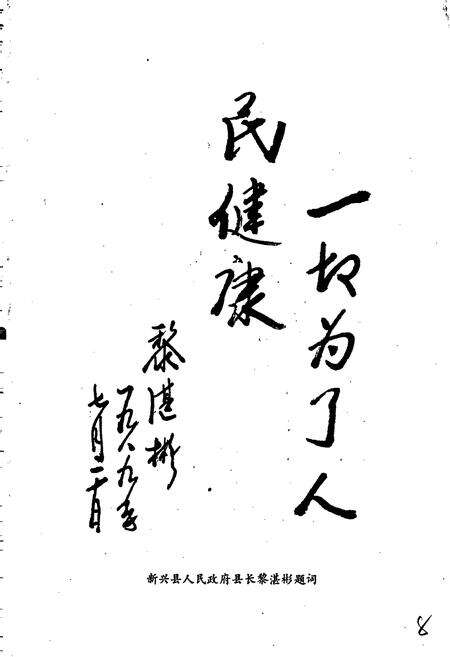 一切为了人
民健康
黎湛彬
一九八九年
七月二十日
新兴县人民政府县长黎湛彬题词
8